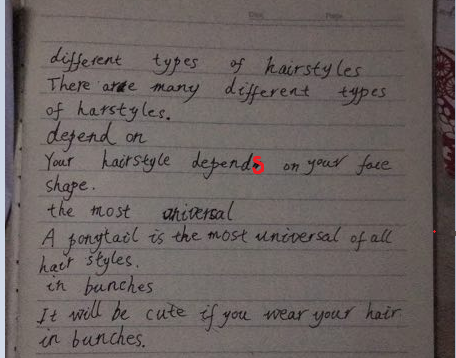 Date Page
different types of hairstyles
There are many different types
of harstyles.
depend on
Your hairstyle depends on your face
shape.
the most universal
A ponytail is the most universal of all
hair styles.
in bunches
It will be cute if you wear your hair
in bunches.